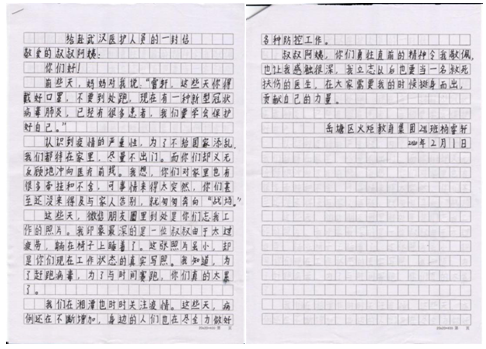 给赴武汉医护人员的一封信
敬爱的叔叔阿姨：
你们好！
前些天，妈妈对我说："雷轩，这些天你得
戴好口罩，不要到处跑，现在有一种新型冠状
病毒肺炎，已经有很多患者，我们要学会保护
好自己。"
认识到疫情的严重性，为了不给国家添乱，
我们都待在家里，尽量不出门。而你们却义无
反顾地冲向医疗前线。我想，你们对家里也有
很多牵挂和不舍，可事情来得太突然，你们甚
至还没来得及与家人告别，就匆匆奔向"战场"。
这些天，微信朋友圈里到处是你们忘我工
作的照片。我印象最深的是一位叔叔由于太过
疲惫，躺在椅子上睡着了。这张照片虽小，却
是你们现在工作状态的真实写照。我知道，为
了赶跑病毒，为了与时间赛跑，你们真的太累
了。
我们在湘潭也时时关注疫情。这些天，病
例还在不断增加，身边的人们也在尽全力做好
各种防控工作。
叔叔阿姨，你们勇往直前的精神令我敬佩，
也让我感触很深，我立志以后也要当一名救死
扶伤的医生，在大家需要我的时候挺身而出，
贡献自己的力量。
岳塘区火炬教育集团
2020年2月1日